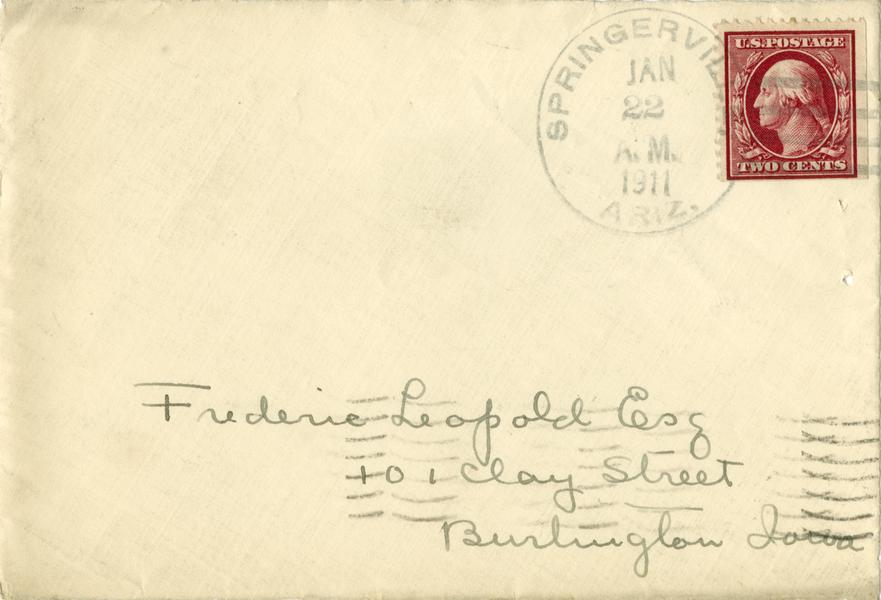 SPRINGERVIL
JAN
22
A.M.
1911
ARIZ.
U.S. POSTAGE
TWO CENTS
Frederic Leopold Esq
101 Clay Street
Burlington Iowa